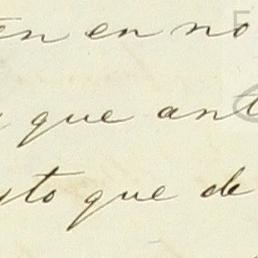 en en no
que ant
sto que de